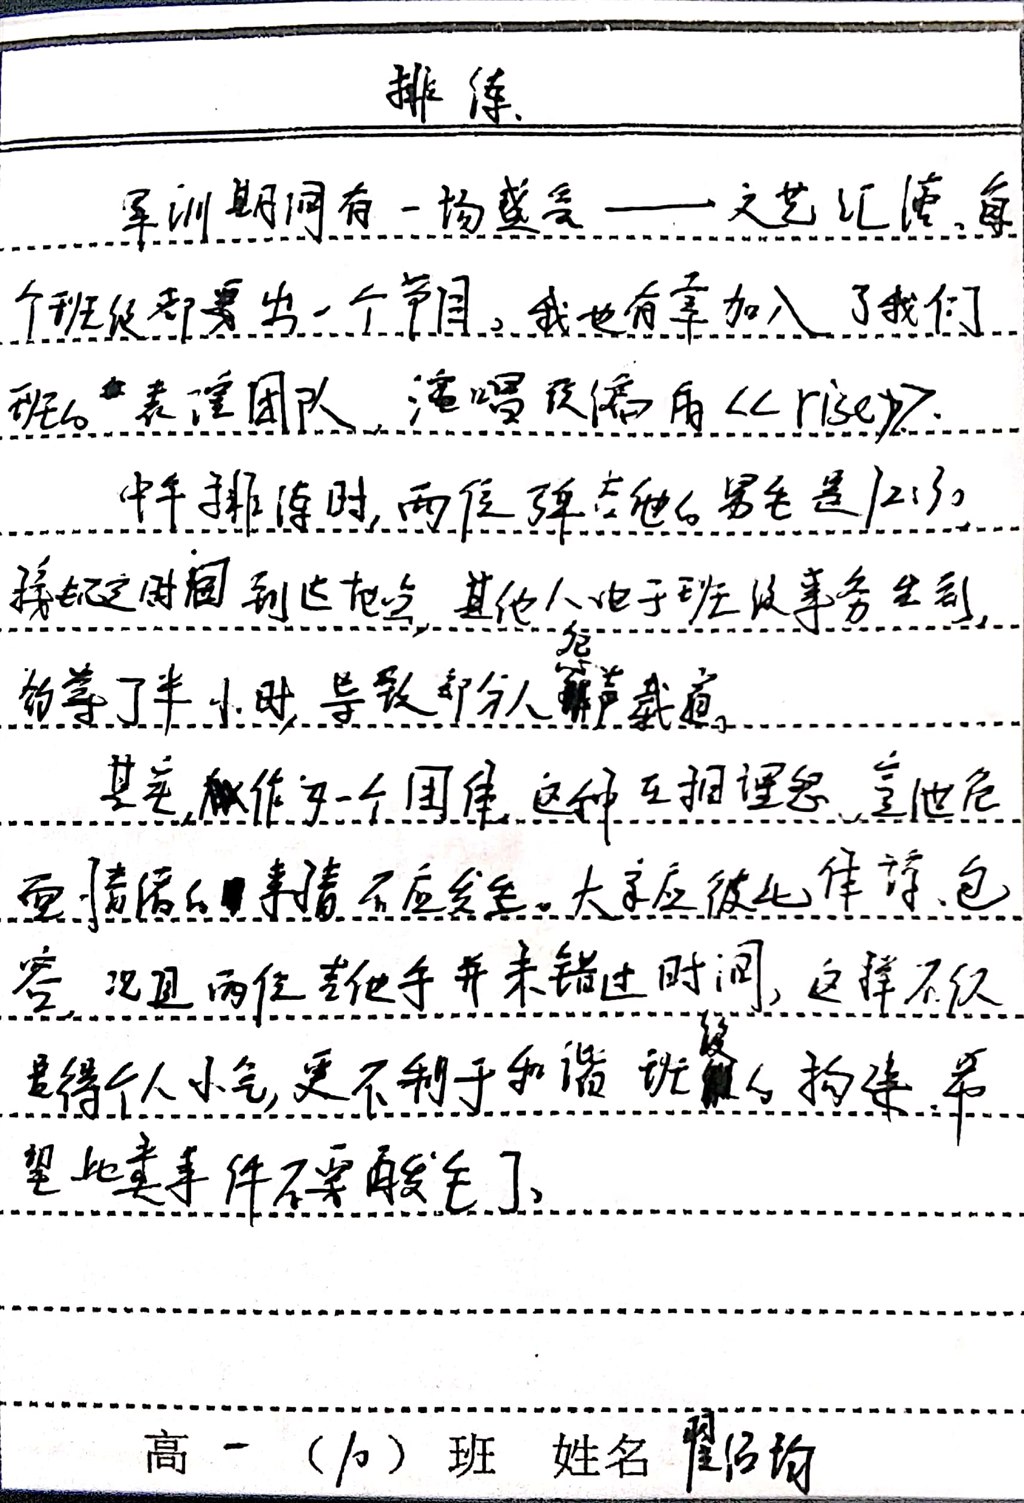 排练
军训期间有一场盛会——文艺汇演,每
个班级都要出一个节目。我也有幸加入了我们
班的表演团队,演唱改编自<<rise>>.
中午排练时,两位弹吉他的男生是12:30
按规定时间到达地点,其他人由于班级事务在前,
约等了半小时,导致部分人怨声载道。
其实,作为一个团体,这种互相埋怨、宣泄负
面情绪的事情不应发生。大家应彼此体谅、包
容,况且两位吉他手并未错过时间,这样不仅
显得个人小气,更不利于和谐班级的构建.希
望此类事件不要再发生了。
高一(10)班 姓名 翟